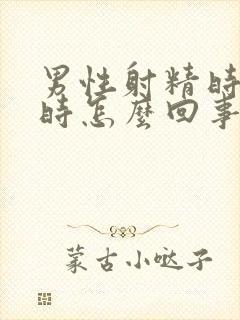 男性射精時
時怎麼回事
蒙古小哒子